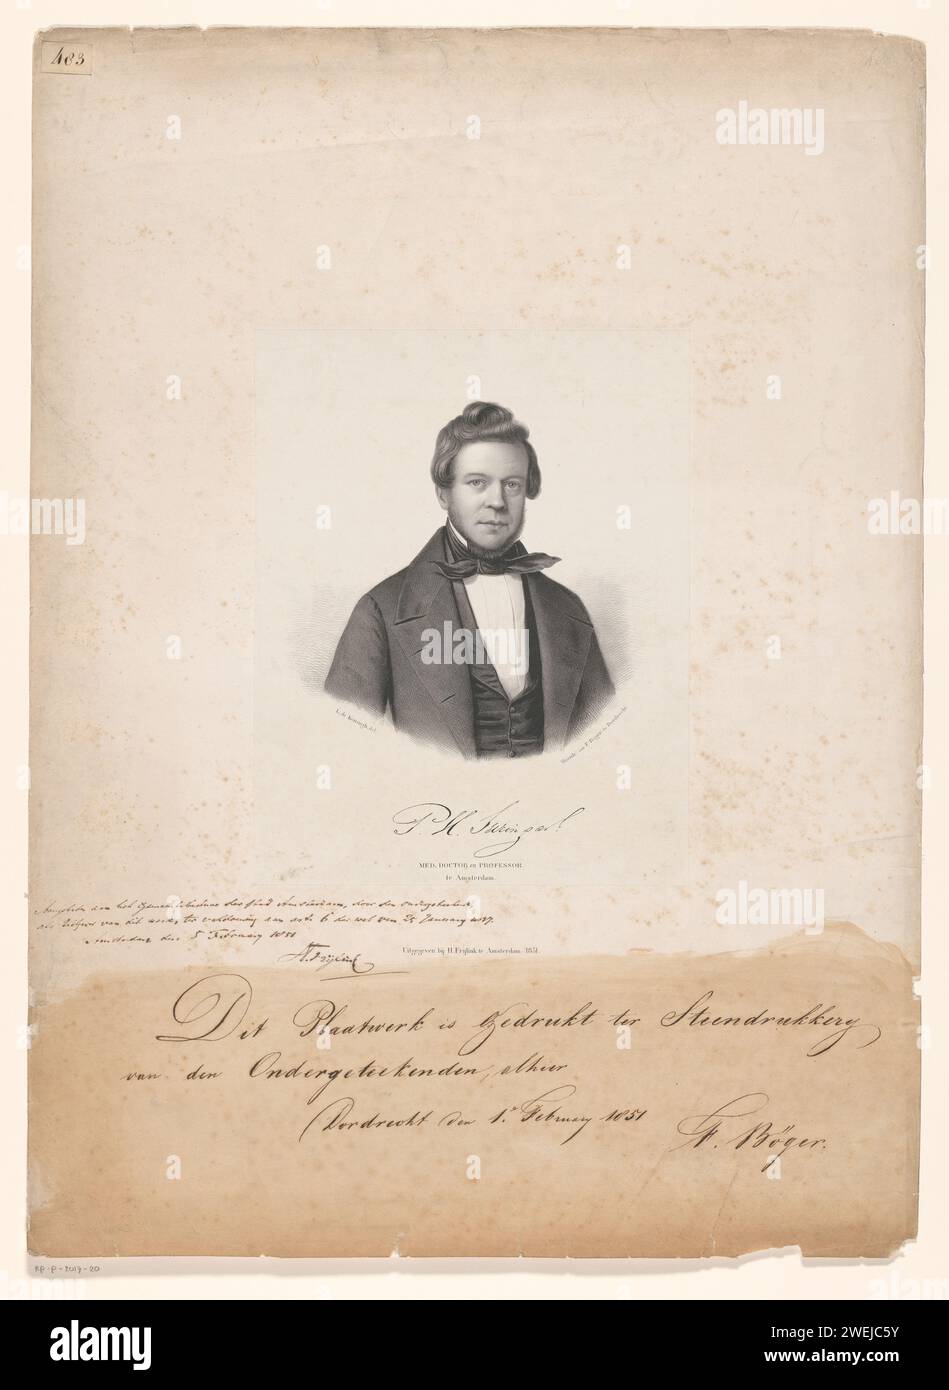 483
L. de Koningh, del.
Steendr. van F. Böger te Dordrecht
P. H. Suringar.
MED. DOCTOR en PROFESSOR
te Amsterdam.
Aangeboden aan het Gemeentebestuur der Stad Amsterdam, door den ondergeteekende
als Uitgever van dit werk, ter voldoening aan art. 6 der wet van 25 January 1817.
Amsterdam den 5 February 1851
H. Frijlink
Uitgegeven bij H. Frijlink te Amsterdam. 1851.
Dit Plaatwerk is Gedrukt ter Steendrukkery
van den Ondergeteekenden, alhier
Dordrecht den 1e February 1851
F. Böger.
RP-P-2017-20
alamy
alamy
Image ID: 2WEJC5Y
www.alamy.com